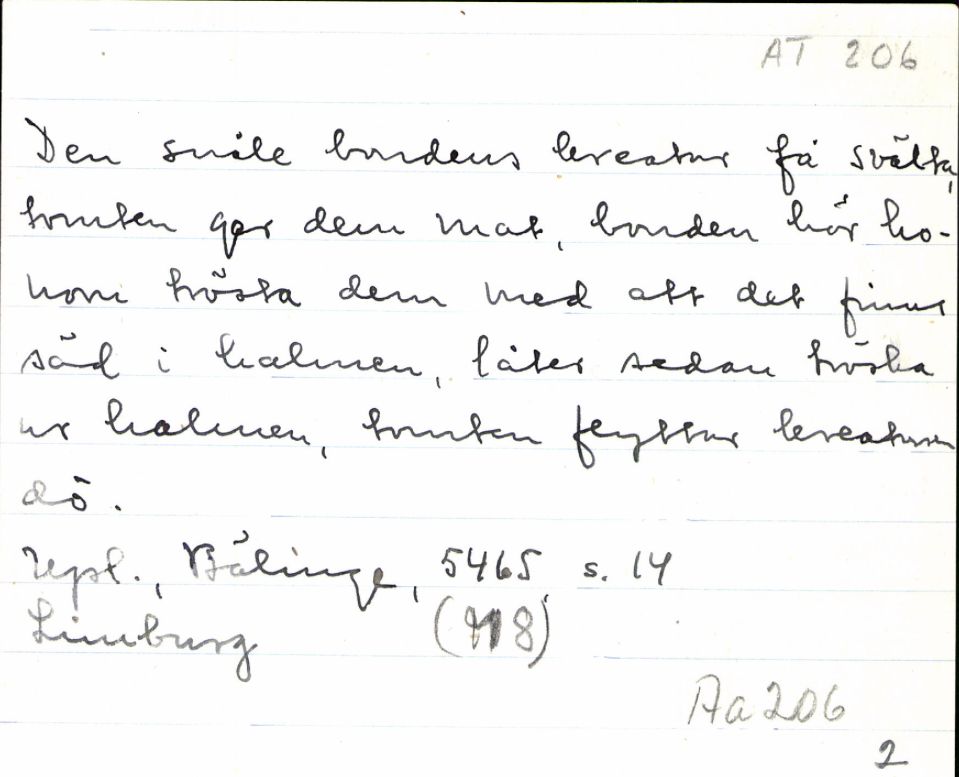 AT 206
Den snåle bondens kreatur få svälta,
tomten ger dem mat, bonden hör ho-
nom trösta dem med att det finns
säd i halmen, låter sedan tröska
ur halmen, tomten flyttar kreaturen
dö.
Uppl., Bälinge, 5465, s. 14
Limburg (118)
Aa 206
2